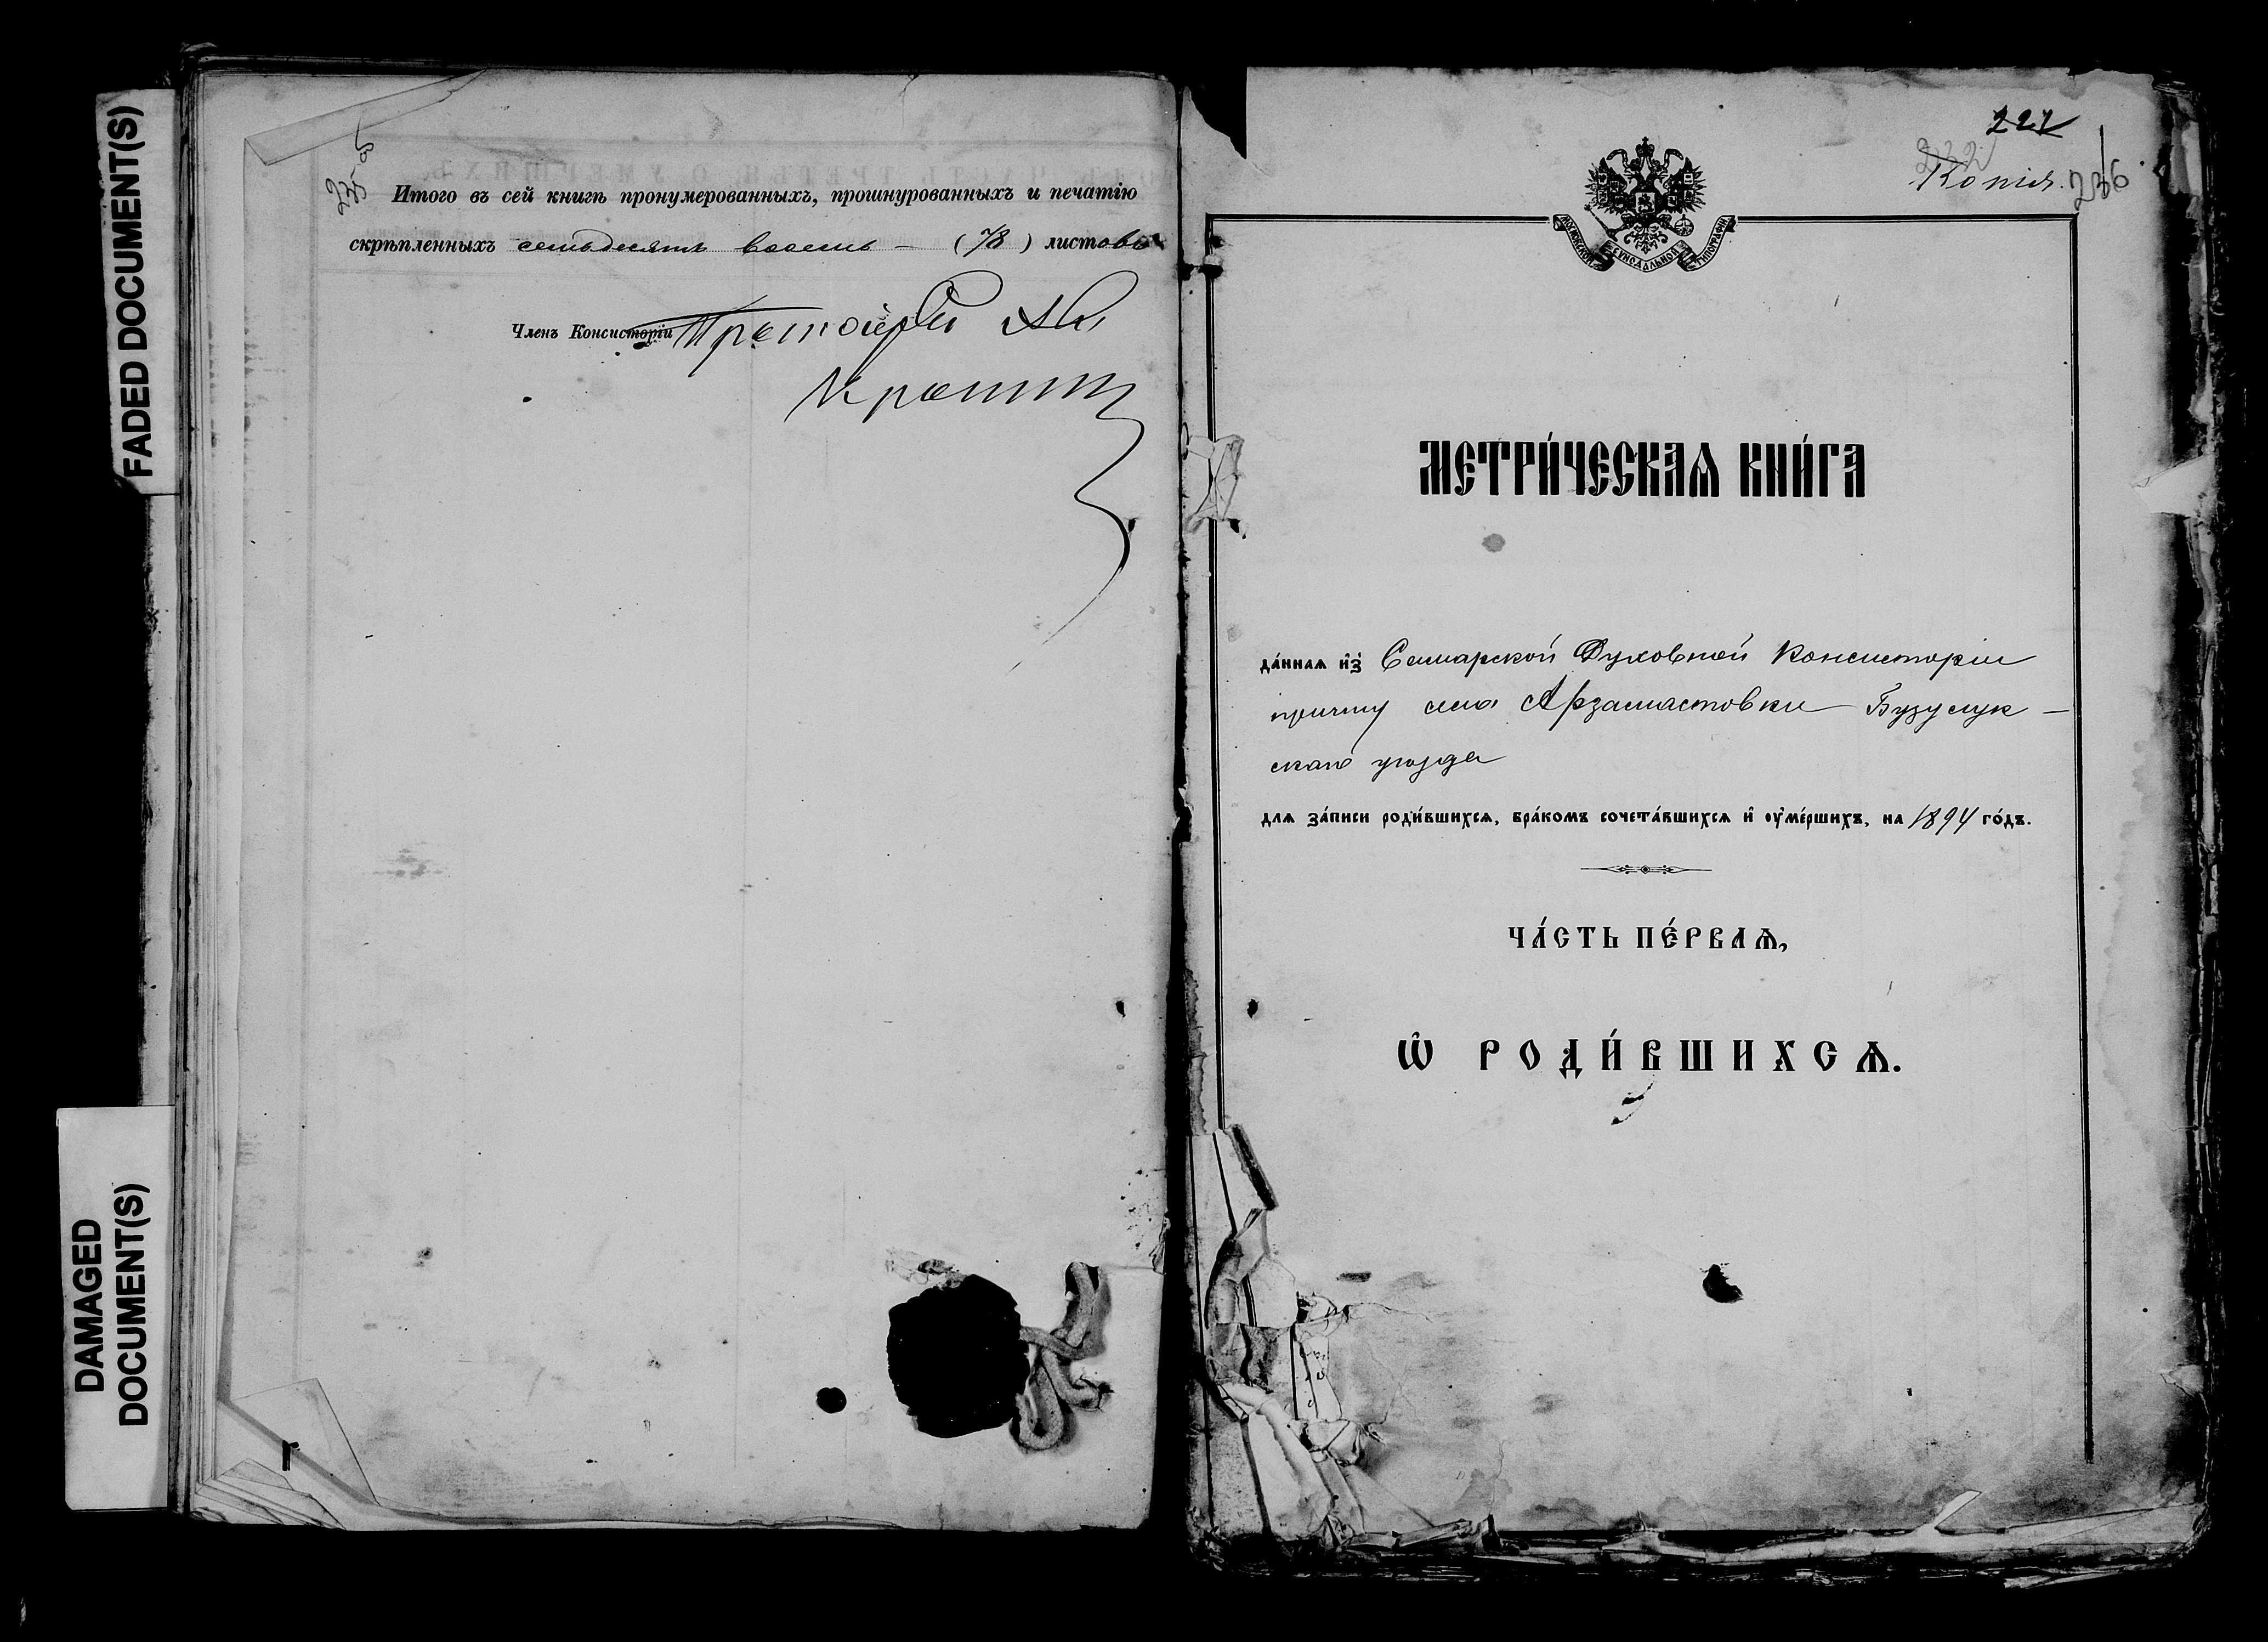 FADED DOCUMENT(S)
DAMAGED
DOCUMENT(S)
Итого въ сей книгѣ пронумерованныхъ, прошнурованныхъ и печатію
скрѣпленныхъ семьдесятъ восемь — (78) листовъ
Членъ Консисторіи Протоіерей
221
232
Копія. 236
МОСКОВСКОЙ СѴНОДАЛЬНОЙ ТИПОГРАФІИ
МЕТРИ́ЧЕСКАѦ КНИ́ГА
да́ннаѧ и҆з̾ Самарской Духовной Консисторіи
причту села Арзамастовки Бузулук-
скаго уѣзда
длѧ за́писи роди́вшихсѧ, бра́комъ сочета́вшихсѧ и҆ ᲂу҆ме́ршихъ, на 1894 го́дъ.
ЧА́СТЬ ПЕ́РВАѦ,
Ѽ РОДИ́ВШИХСѦ.